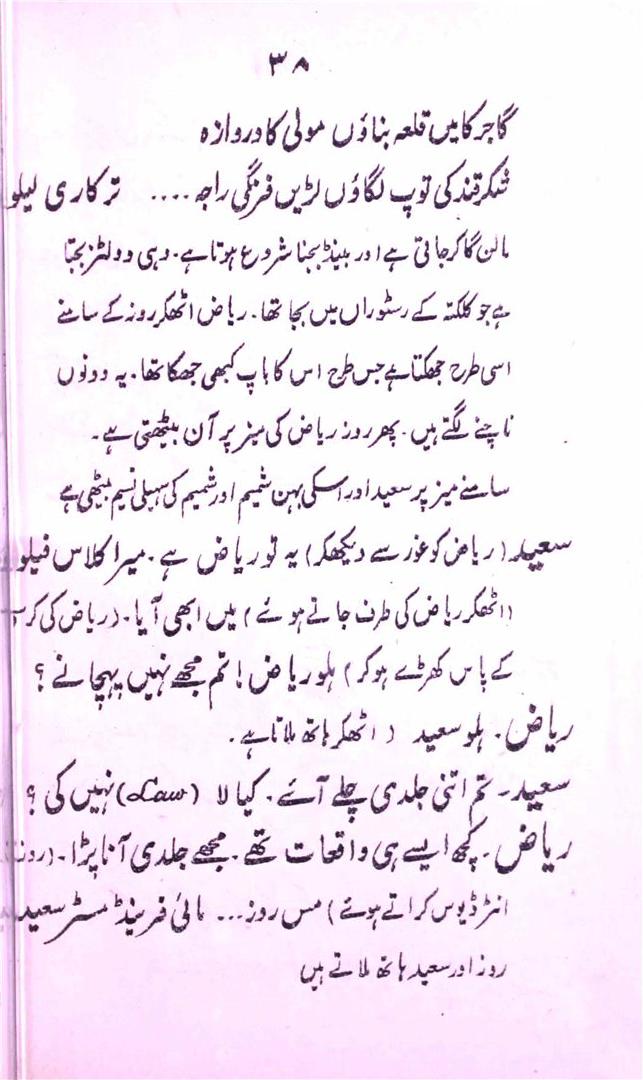 ۳۸
گاجر کا میں قلعہ بناؤں مولی کا دروازہ
شکر قند کی توپ لگاؤں لڑیں فرنگی راجہ .... ترکاری لیلو
مالن گا کر جاتی ہے اور بینڈ بجنا شروع ہوتا ہے۔ وہی وولٹز بجتا
ہے جو کلکتہ کے رسٹوراں میں بجا تھا۔ ریاض اٹھکر روز کے سامنے
اسی طرح جھکتا ہے جس طرح اس کا باپ کبھی جھکا تھا۔ یہ دونوں
ناچنے لگتے ہیں۔ پھر روز ریاض کی میز پر آن بیٹھتی ہے۔
سامنے میز پر سعید اور اسکی بہن شمیم اور شمیم کی سہیلی نسیم بیٹھی ہے
سعید۔ (ریاض کو غور سے دیکھکر) یہ تو ریاض ہے۔ میرا کلاس فیلو
(اٹھکر ریاض کی طرف جاتے ہوئے) میں ابھی آیا۔ (ریاض کی
کے پاس کھڑے ہو کر) ہلو ریاض! تم مجھے نہیں پہچانے؟
ریاض۔ ہلو سعید (اٹھکر ہاتھ ملاتا ہے۔
سعید۔ تم اتنی جلدی چلے آئے۔ کیا لا (Law) نہیں کی؟
ریاض۔ کچھ ایسے ہی واقعات تھے۔ مجھے جلدی آنا پڑا۔
انٹرڈیوس کراتے ہوئے) مس روز... مائی فرینڈ مسٹر سعید
روز اور سعید ہاتھ ملاتے ہیں